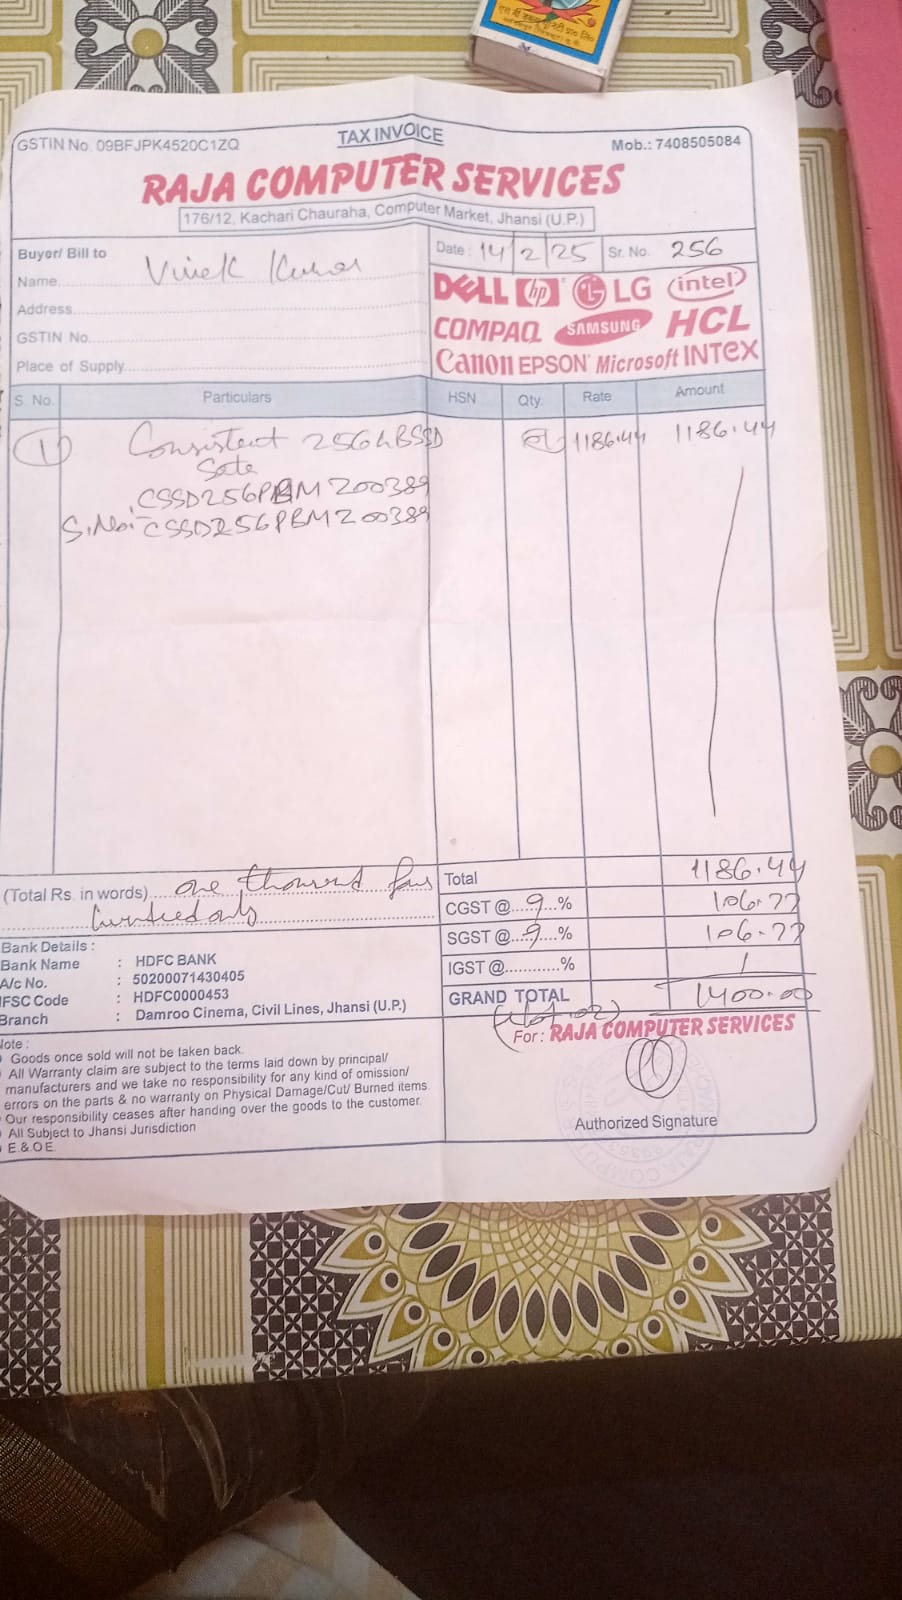 GSTIN No. 09BFJPK4520C1ZQ
TAX INVOICE
Mob.: 7408505084
RAJA COMPUTER SERVICES
176/12, Kachari Chauraha, Computer Market, Jhansi (U.P.)
Buyer/ Bill to
Name Vivek Kumar
Address
GSTIN No.
Place of Supply
Date : 14/2/25 Sr. No. 256
DELL hp LG intel
COMPAQ SAMSUNG HCL
Canon EPSON Microsoft INTEX
S. No. Particulars HSN Qty. Rate Amount
1 Consistent 256GBSSD 1186.44 1186.44
Sata
CSSD256PBMZ00389
S.No:- CSSD256PBMZ00389
(Total Rs. in words) one thousand four
hundred only
Total 1186.44
CGST @ 9 % 106.77
SGST @ 9 % 106.77
IGST @ % /
GRAND TOTAL 1400.00
Bank Details :
Bank Name : HDFC BANK
A/c No. : 50200071430405
IFSC Code : HDFC0000453
Branch : Damroo Cinema, Civil Lines, Jhansi (U.P.)
Note :
Goods once sold will not be taken back.
All Warranty claim are subject to the terms laid down by principal/
manufacturers and we take no responsibility for any kind of omission/
errors on the parts & no warranty on Physical Damage/Cut/ Burned items.
Our responsibility ceases after handing over the goods to the customer.
All Subject to Jhansi Jurisdiction
E & O E
For: RAJA COMPUTER SERVICES
Authorized Signature